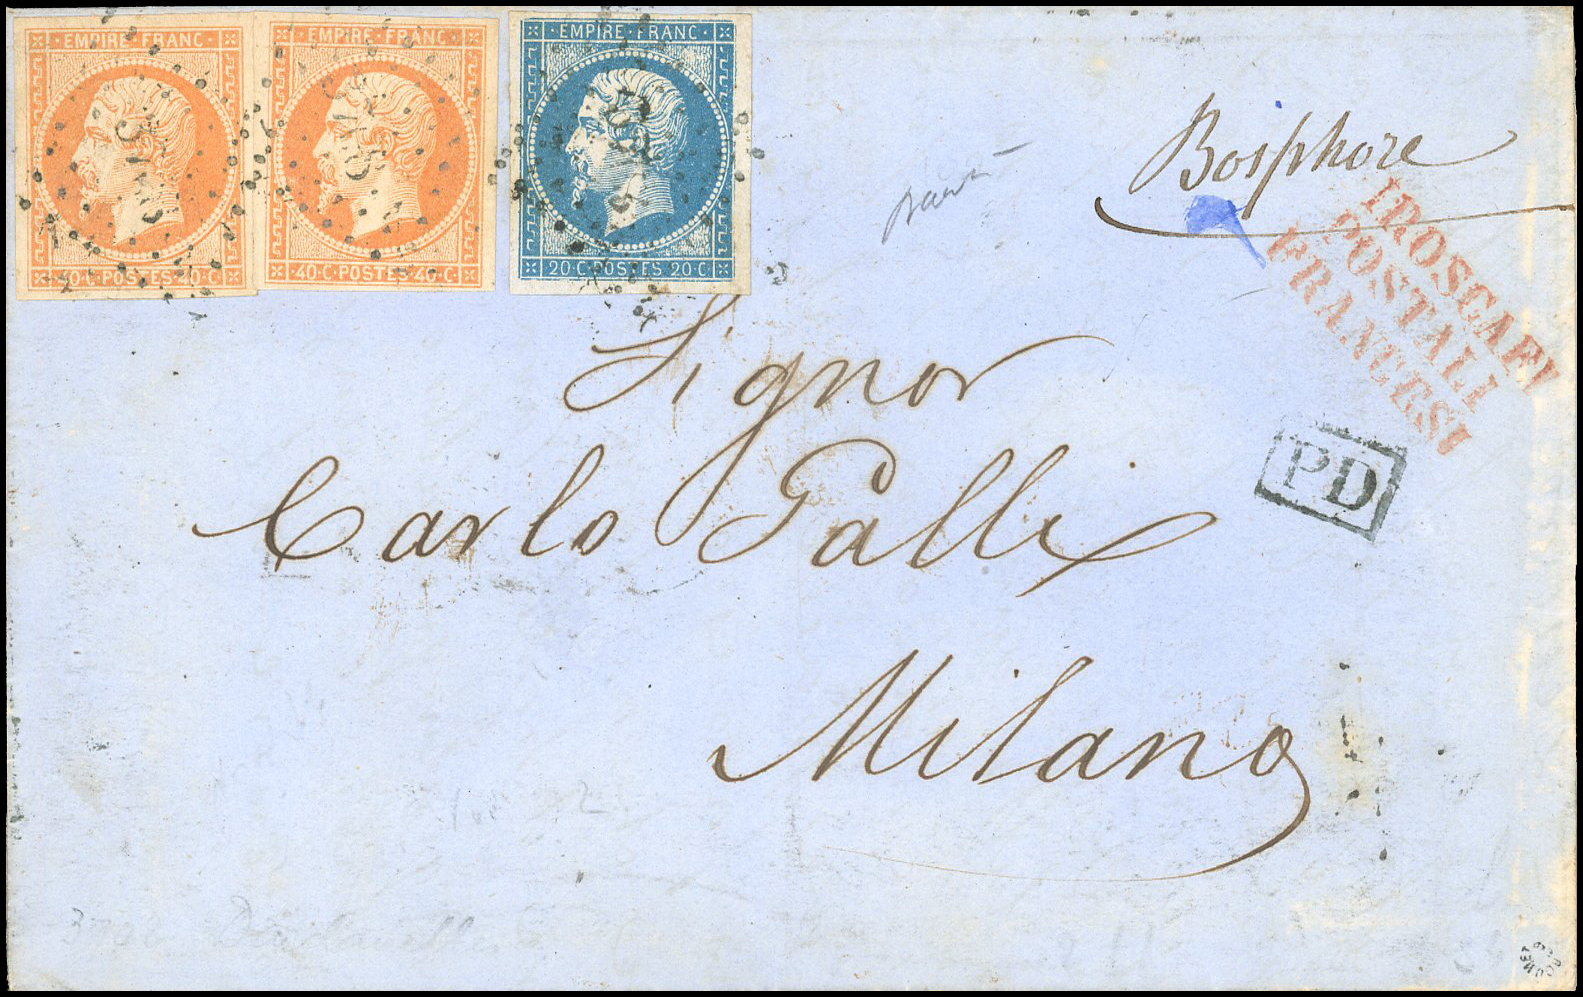 EMPIRE·FRANC·
40·C·POSTES·40·C·
EMPIRE·FRANC·
40·C·POSTES·40·C·
EMPIRE·FRANC·
20·C·POSTES·20·C·
Bosphore
PIROSCAFI
POSTALI
FRANCESI
PD
Signor
Carlo Galli
Milano